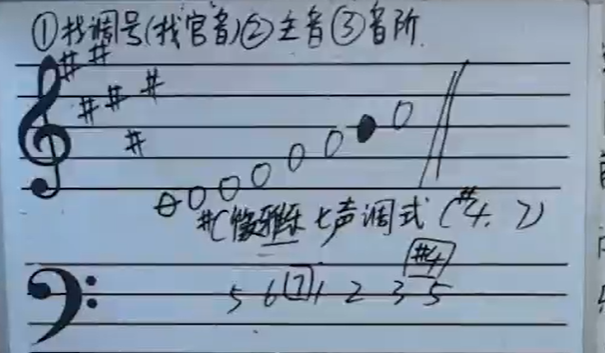 ①找调号(找宫音)②主音③音阶.
#C徵雅乐七声调式 (#4、7)
#4
5 6 7 1 2 3 5